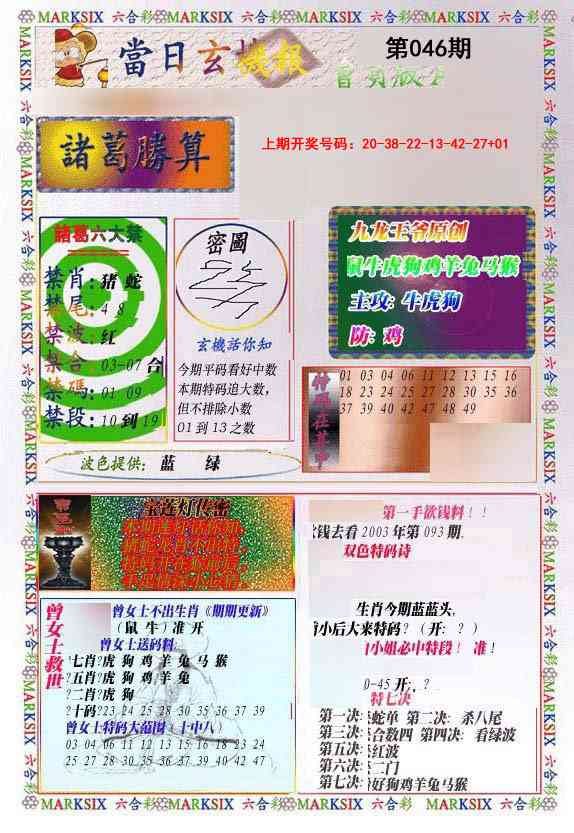 MARKSIX 六合彩 MARKSIX 六合彩 MARKSIX 六合彩 MARKSIX 六合彩
當日玄機報
第046期
諸葛勝算
上期开奖号码：20-38-22-13-42-27+01
諸葛六大禁
禁肖：猪 蛇
禁尾：4 8
禁波：红
禁合：03-07 合
禁碼：01 09
禁段：10 到 19
密圖
玄機話你知
今期平码看好中数
本期特码追大数，
但不排除小数
01 到 13 之数
九龙王爷原创
鼠牛虎狗鸡羊兔马猴
主攻：牛虎狗
防：鸡
01 03 04 06 11 12 13 15 16
18 23 24 25 27 28 30 35 36
37 39 40 42 47 48 49
波色提供： 蓝 绿
宝莲灯传密
曾女士救世
曾女士不出生肖《期期更新》
（鼠 牛）准 开
曾女士送码料:
?七肖?虎 狗 鸡 羊 兔 马 猴
?五肖?虎 狗 鸡 羊 兔
?二肖?虎 狗
?十码?23 24 25 28 30 35 36 37 39
曾女士特码大范围（十中八）
03 04 06 11 12 13 15 16 18 23 24
25 27 28 30 35 36 37 39 40 42 47
第一手欲钱料！！
欲钱去看 2003 年第 093 期.
双色特码诗
生肖今期蓝蓝头,
前小后大来特码？（开: ？）
小姐必中特段！ 准！
0-45 开: . ?
特七决
第一决: 蛇单 第二决: 杀八尾
第三决: 合数四 第四决: 看绿波
第五决: 红波
第六决: 二门
第七决: 好狗鸡羊兔马猴
MARKSIX 六合彩 MARKSIX 六合彩 MARKSIX 六合彩 MARKSIX 六合彩